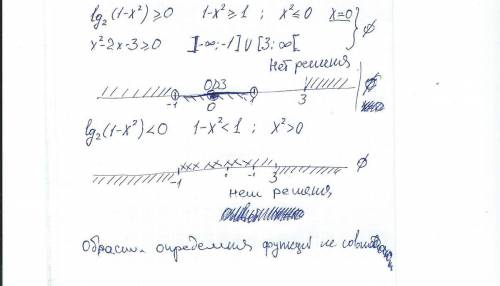 lg₂(1-x²)≥0 1-x²≥1 ; x²≤0 x=0 } ∅
x²-2x-3≥0 ]-∞;-1] U [3; ∞[
Нет решения
ОДЗ
-1 0 1 3 ∅
lg₂(1-x²)<0 1-x²<1 ; x²>0
-1 -1 3 ∅
нет решения,
определения функций не